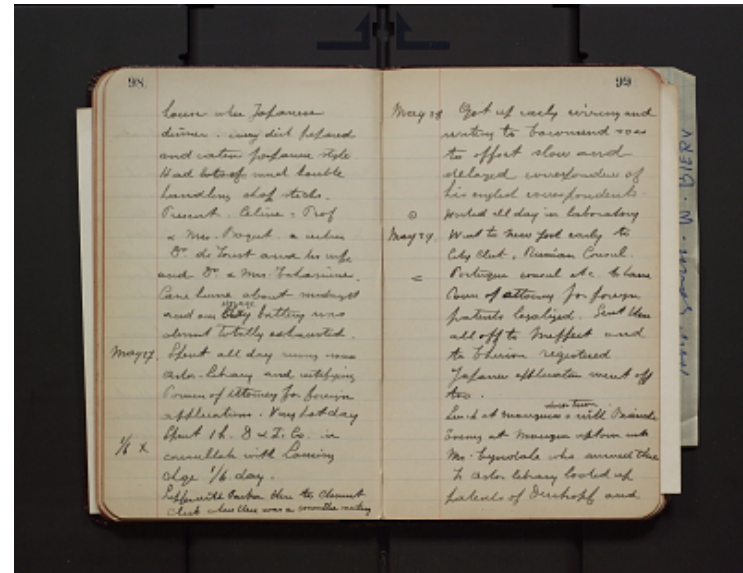 98
house when Japanese
dinner. every dish prepared
and eaten Japanese style
Had lots of trouble
handling chop sticks.
Present. Celine, Prof
& Mrs. Bogert
Dr. de Forest and his wife
and Dr. & Mrs. Takamine.
Came home about midnight
and my battery was
storage
almost totally exhausted.
May 27. Spent all day
Astor Library and
Power of Attorney for foreign
applications. Very hot day
1/8 X Spent 1 h. D & I. Co. in
consultation with Loening
chge 1/6 day.
Supper with then to Chemist
Club where there was a committee meeting
99
May 28 Got up early wiring and
writing to Townsend
to offset slow and
delayed correspondence of
his english correspondents.
Worked all day in laboratory
May 29. Went to New York early to
City Club, Russian Consul.
Portugese consul etc to have
Power of attorney for foreign
patents legalized. Sent them
all off to and
to registered
Japanese application went off
too.
down town
Lunch at with
Evening at uptown with
Mr. who arrived there
In Astor library looked up
patents of and